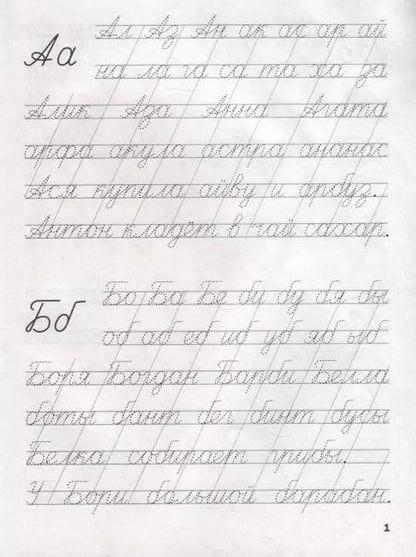 Аа
Ал Аз Ан ак ас ар ай
на ла га са та ха за
Алик Аза Анна Агата
арфа акула астра ананас
Ася купила айву и арбуз.
Антон кладёт в чай сахар.
Бб
Бо Ба Бе би бу бя бы
об аб еб иб уб яб ыб
Боря Богдан Барби Белла
боты бант бег бинт бусы
Белка собирает грибы.
У Бори большой барабан.
1